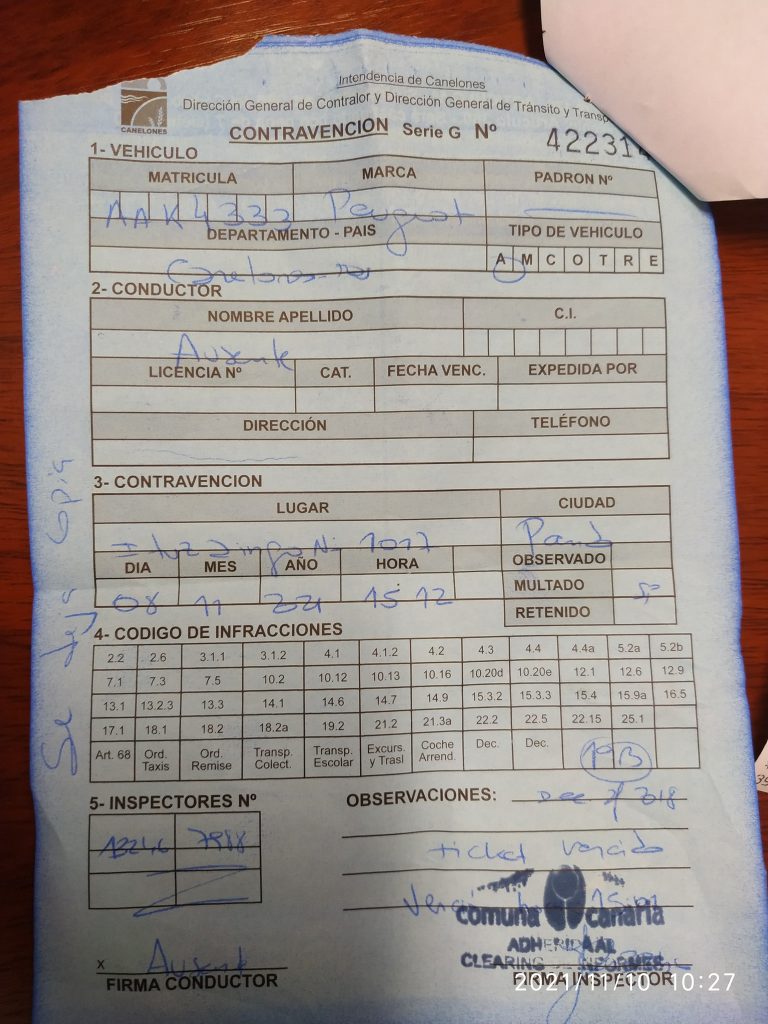 Intendencia de Canelones
CANELONES
Dirección General de Contralor y Dirección General de Tránsito y Transp
CONTRAVENCION Serie G Nº 42231
1- VEHICULO
MATRICULA MARCA PADRON Nº
AAK4333 Peugeot
DEPARTAMENTO - PAIS TIPO DE VEHICULO
Canelones A M C O T R E
2- CONDUCTOR
NOMBRE APELLIDO C.I.
Ausente
LICENCIA Nº CAT. FECHA VENC. EXPEDIDA POR
DIRECCIÓN TELÉFONO
3- CONTRAVENCION
LUGAR CIUDAD
Ituzaingo Nº 1017 Pando
DIA MES AÑO HORA OBSERVADO
08 11 2021 15 12 MULTADO Si
RETENIDO
4- CODIGO DE INFRACCIONES
2.2 2.6 3.1.1 3.1.2 4.1 4.1.2 4.2 4.3 4.4 4.4a 5.2a 5.2b
7.1 7.3 7.5 10.2 10.12 10.13 10.16 10.20d 10.20e 12.1 12.6 12.9
13.1 13.2.3 13.3 14.1 14.6 14.7 14.9 15.3.2 15.3.3 15.4 15.9a 16.5
17.1 18.1 18.2 18.2a 19.2 21.2 21.3a 22.2 22.5 22.15 25.1
Art. 68 Ord. Taxis Ord. Remise Transp. Colect. Transp. Escolar Excurs. y Trasl Coche Arrend. Dec. Dec. 19B
5- INSPECTORES Nº OBSERVACIONES:
7988
ticket vencido
comuna canaria
ADHERIDA AL
CLEARING DE INFORMES
x Ausente
FIRMA CONDUCTOR FIRMA INSPECTOR
2021/11/10 10:27
Se deja copia